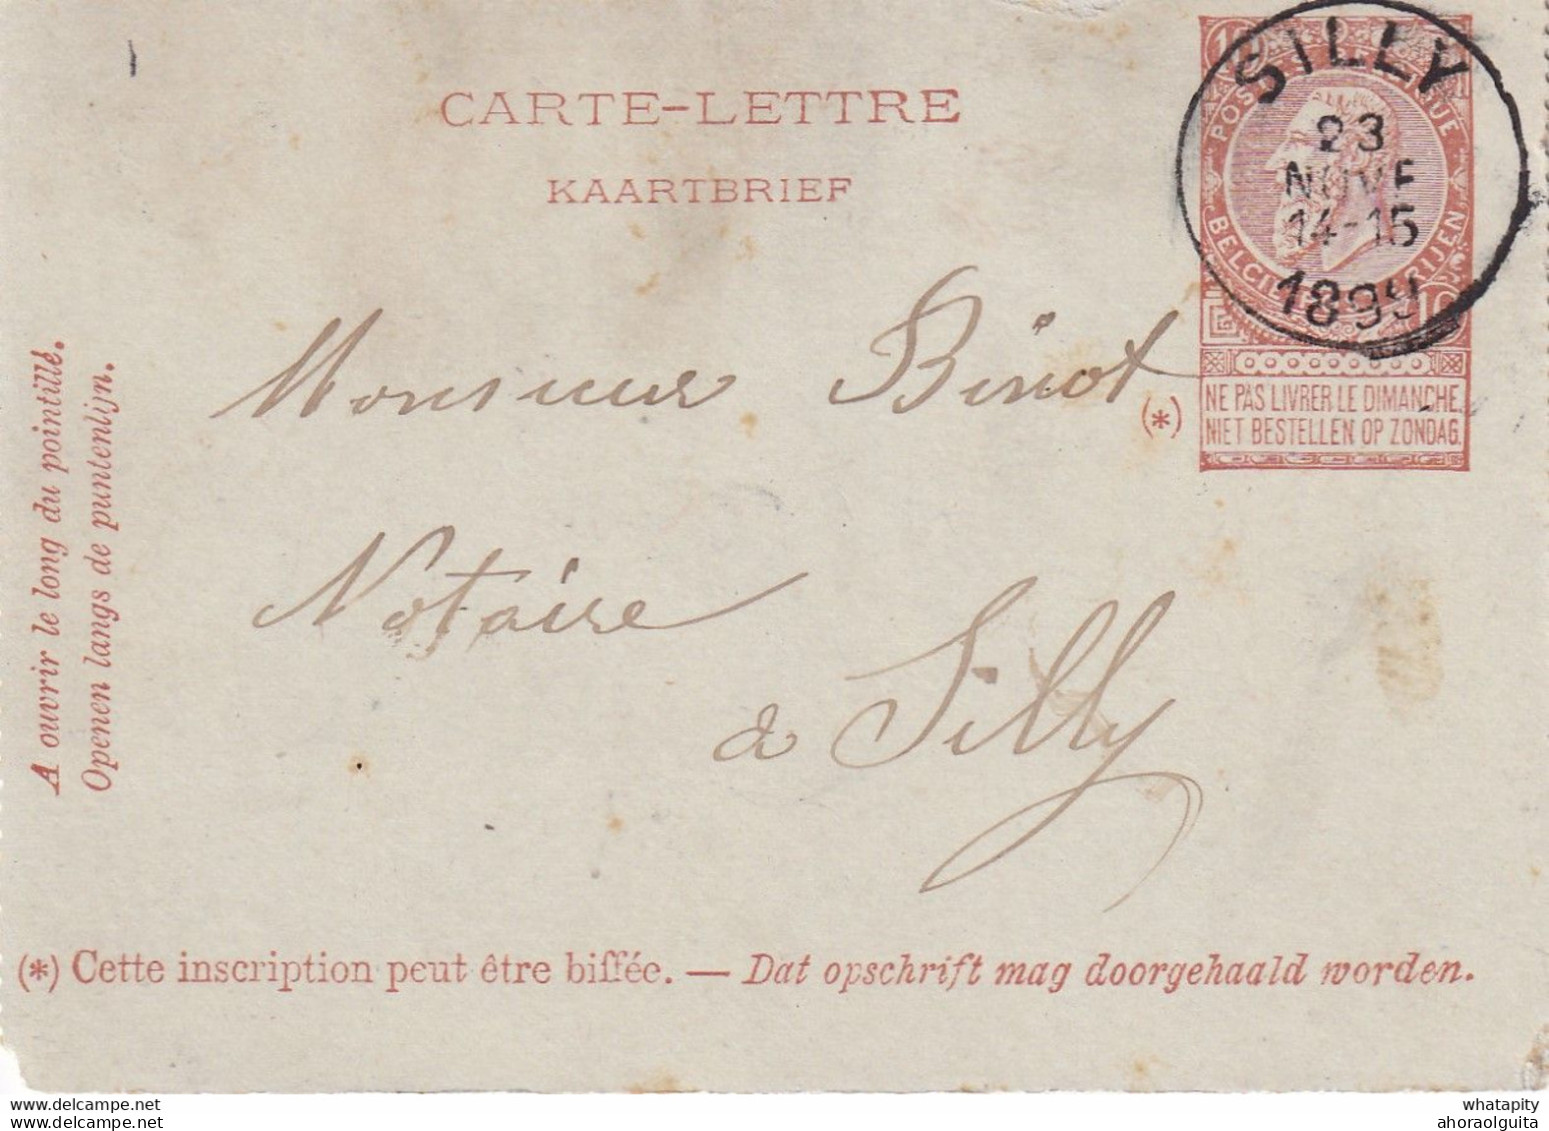 CARTE-LETTRE
KAARTBRIEF
SILLY
23
NOVE
14-15
1899
10
BELGIE
10
Monsieur Binot
(*)
NE PAS LIVRER LE DIMANCHE.
NIET BESTELLEN OP ZONDAG.
Notaire
à Silly
A ouvrir le long du pointillé.
Openen langs de puntenlijn.
(*) Cette inscription peut être biffée. — Dat opschrift mag doorgehaald worden.
delcampe.net
delcampe.net
whatapity
ahoraolguita